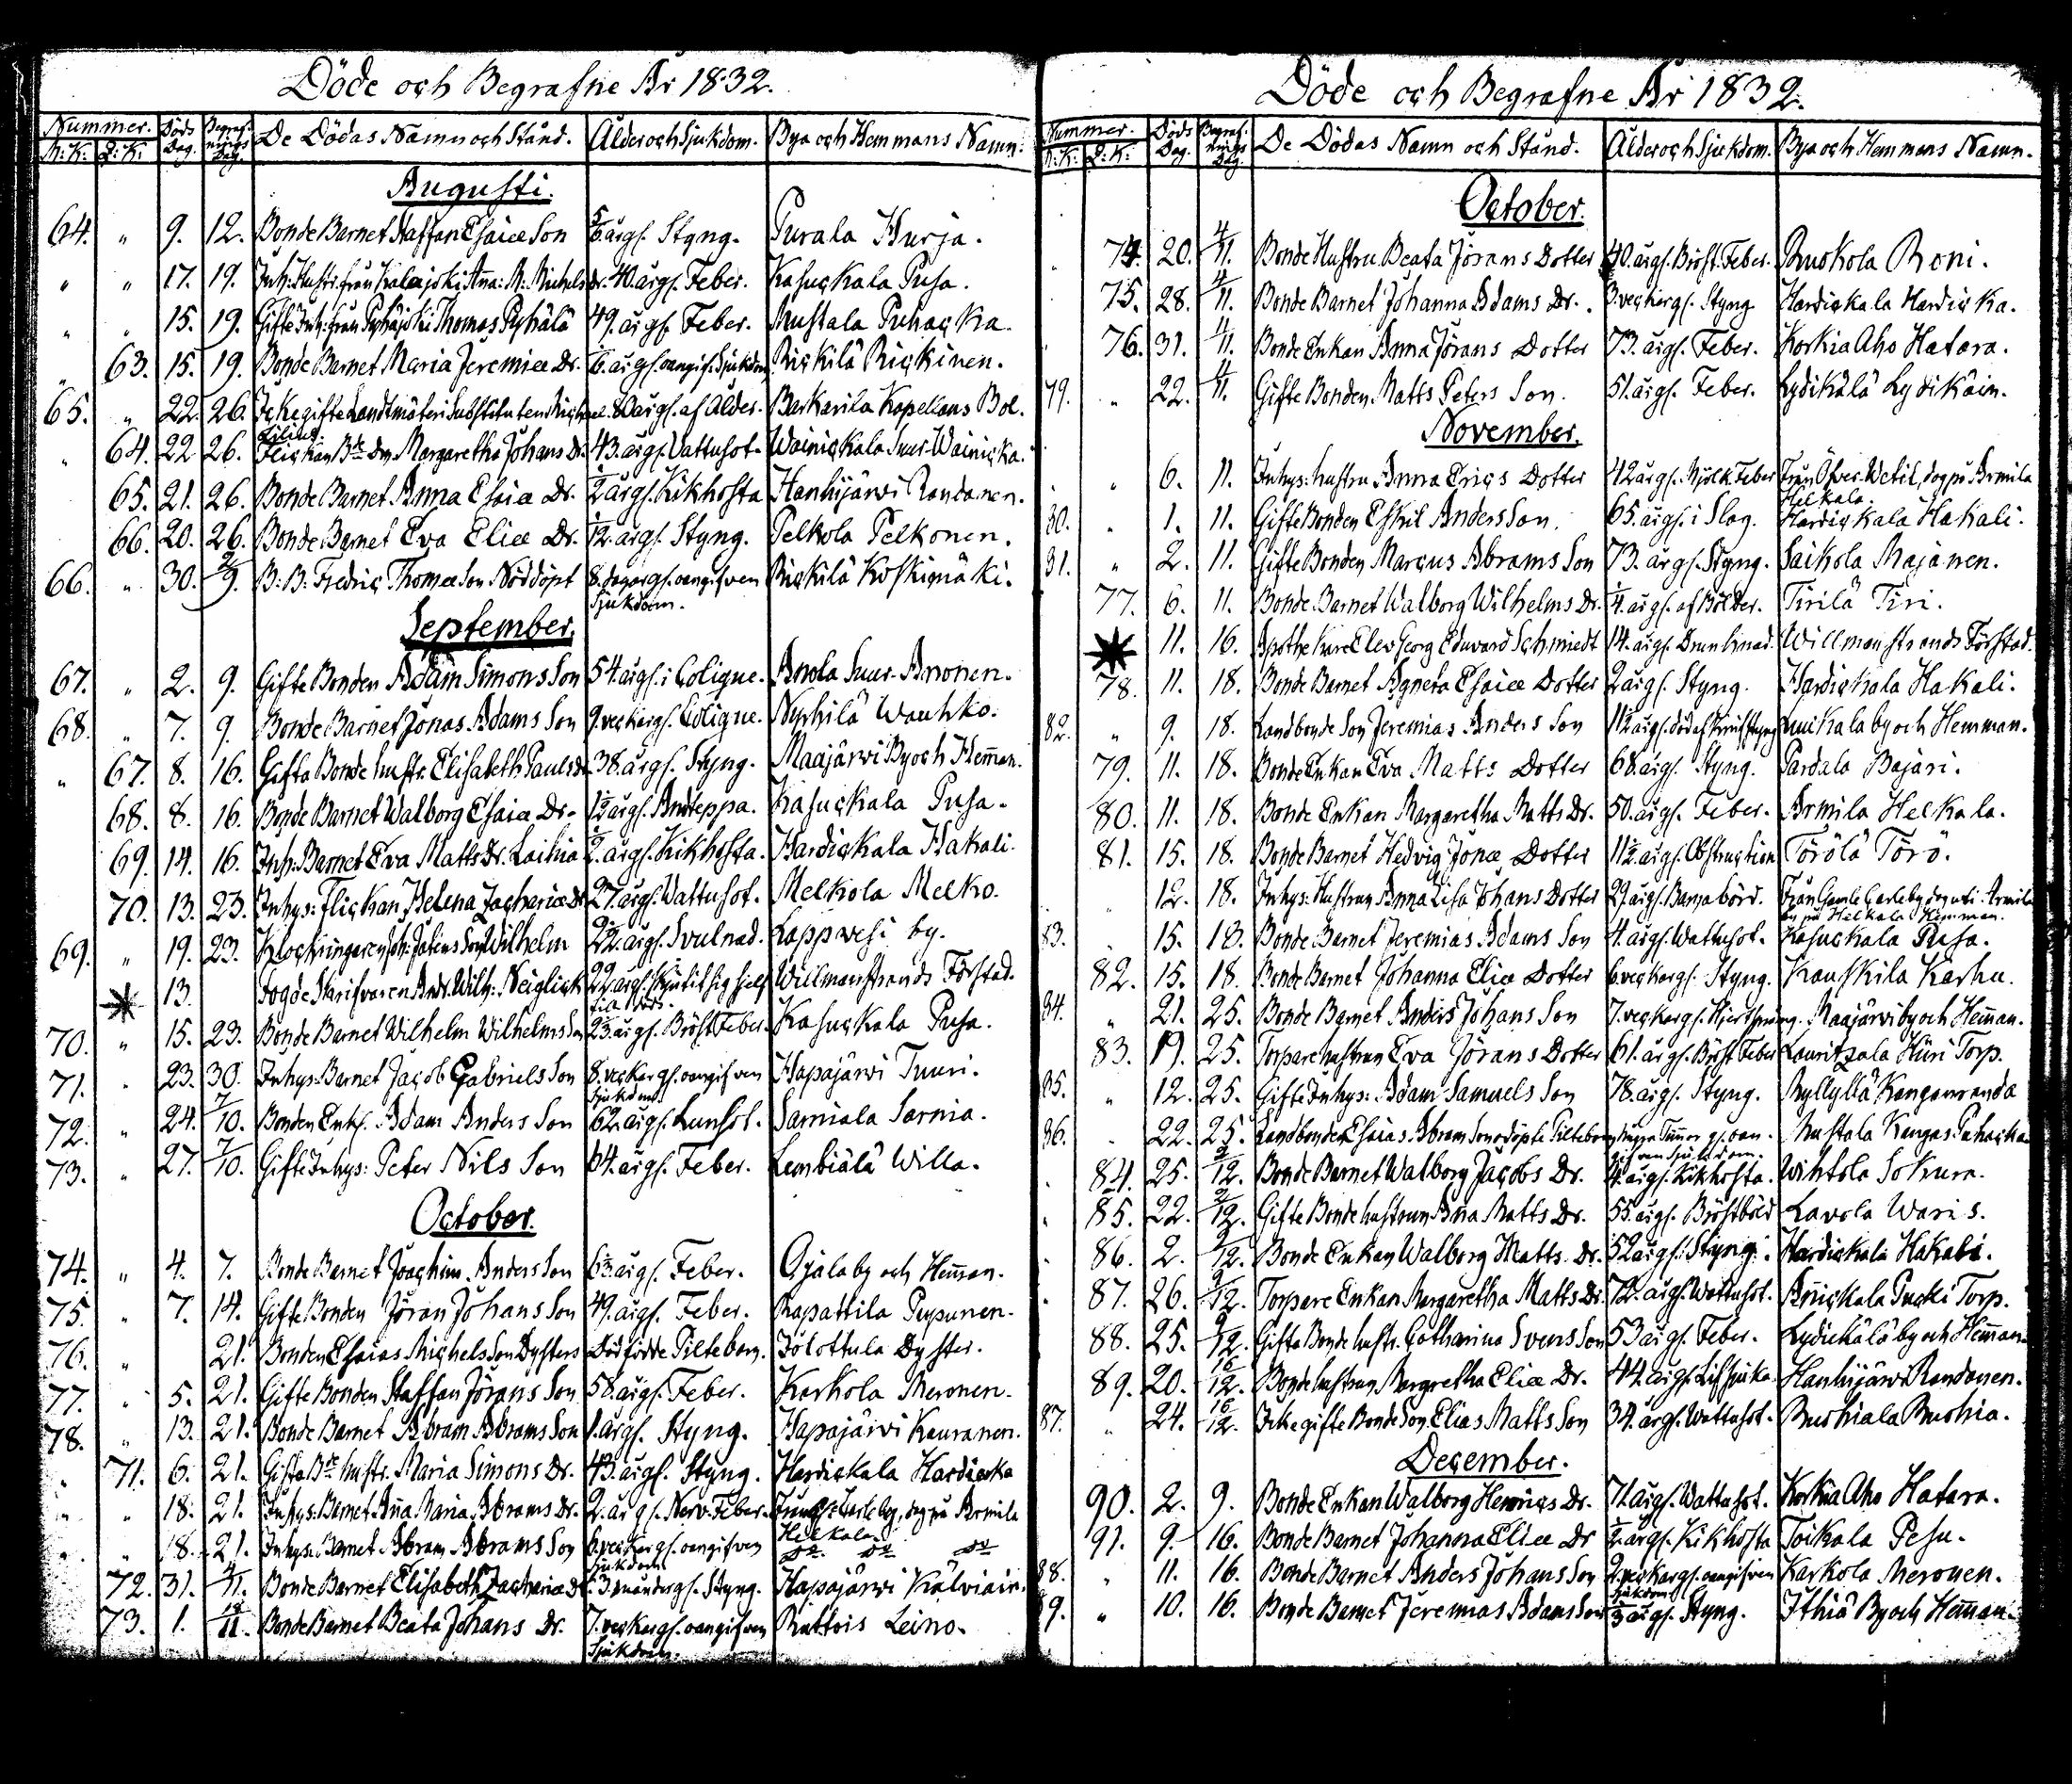 Döde och Begrafne År 1832.
Nummer. Döds Dag. Begrafnings Dag. De Dödas Namn och Stånd. Ålder och Sjukdom. Bya och Hemmans Namn.
M:K: Q:K:
Augusti.
64. " 9. 12. Bonde Barnet Staffan Esaiæ Son årgl. Styng. Purala Hurja.
" " 17. 19. Inh: Hustr. från Kalajoki Michels dr. 40. årgl. Feber. Kasuckala Pusa.
" " 15. 19. Gifte Inh: från Pyhäjoki Thomas Pyhälä 49. årgl. Feber. Mustala Puhacka.
" 63. 15. 19. Bonde Barnet Maria Jeremiæ Dr. årgl. oangif. Sjukdom Rickilä Rickinen.
65. " 22. 26. Icke gifte Landtmäteri Substituten årgl. af Ålder. Barkarila Kapellans Bol.
" 64. 22 26. Flickan Margaretha Johans Dr. 43. årgl. Vattusot. Wainickala Suur-Wainicka.
65. 21. 26. Bonde Barnet Anna Esaiæ Dr. ½ årgl. Kikhosta Hanhijärvi Randanen.
66. 20. 26. Bonde Barnet Eva Eliæ Dr. årgl. Styng. Pelkola Pelkonen.
66. " 30. 2/9. B: B: Fredric Thomæ Son Nöddöpt 8. dagargl. oangifven Rickilä Koskimäki.
Sjukdom.
September.
67. " 2. 9. Gifte Bonden Adam Simons Son 54. årgl. i Colique. Anola Suur-Anonen.
68. " 7. 9. Bonde Barnet Jonas Adams Son 9. veckargl. Colique. Nyrhilä Wauhko.
" 67. 8. 16. Gifta Bonde hustr. Elisabeth Pauls dr 38. årgl. Styng. Maajärvi By och Hem̅an.
68. 8. 16. Bonde Barnet Walborg Esaiæ Dr. 1½ årgl. Andteppa. Kasuckala Pusa.
69. 14. 16. Inh: Barnet Eva Matts Dr. Laihia 2. årgl. Kikhosta. Hardickala Hakali.
70. 13. 23. Inhys: Flickan Helena Zachariæ Dr 27. årgl. Wattusot. Melkola Melko.
69. " 19. 23. Klockringaren Joh: Son Wilhelm årgl. Svulnad. Lappvesi by.
13. Fogde Skrifvaren Andr. Wilh: Neiglick 22. årgl. Skjutit sig sjelf Willmanstrands Förstad.
till döds.
70. " 15. 23. Bonde Barnet Wilhelm Wilhelms Son årgl. Bröst Feber. Kasuckala Pusa.
71. " 23. 30. Inhys: Barnet Jacob Gabriels Son 8. veckargl. oangifven Hapajärvi Tuuri.
Sjukdom.
72. " 24. 7/10. Bonden Enkl. Adam Anders Son 62. årgl. Lunsot. Sarniala Sarnia.
73. " 27. 7/10. Gifte Inhys: Peter Nils Son 64. årgl. Feber. Lembiälä Willa.
October.
74. " 4. 7. Bonde Barnet Joachim Anders Son årgl. Feber. Ojala by och Hem̅an.
75. " 7. 14. Gifte Bonden Jöran Johans Son 49. årgl. Feber. Rapattila Pupunen.
76. " 21. Bonden Esaias Michels Son Dysters Dödfödde Piltebarn. Jölottula Dyster.
77. " 5. 21. Gifte Bonden Staffan Jörans Son 58. årgl. Feber. Karkola Meronen.
78. " 13. 21. Bonde Barnet Abram Abrams Son 1. årgl. Styng. Hapajärvi Kauranen.
" 71. 6. 21. Gifta Bde hustr. Maria Simons Dr. 43. årgl. Styng. Hardickala Hardicka
" " 18. 21. Inhys: Barnet An̅a Maria Abrams Dr. 2. årgl. Nerv-Feber. Från Carleby, dog på Armila
Helkala.
" " 18. 21. Inhys: Barnet Abram Abrams Son 6. veckargl. oangifven do do do
Sjukdom
72. 31. 4/11. Bonde Barnet Elisabeth Zachariæ Dr 3 månadergl. Styng. Hapajärvi Kälviäin.
73. 1. Bonde Barnet Beata Johans Dr. 7. veckargl. oangifven Rattois Leino.
Sjukdom.
Döde och Begrafne År 1832.
Nummer. Döds Dag. Begrafnings Dag. De Dödas Namn och Stånd. Ålder och Sjukdom. Bya och Hemmans Namn.
M:K: Q:K:
October.
74. 20. 4/11. Bonde Hustru Beata Jörans Dotter 40. årgl. Bröst Feber. Ruokola Roni.
75. 28. 4/11. Bonde Barnet Johanna Adams Dr. 3. veckargl. Styng Hardickala Hardicka.
76. 31. 4/11. Bonde Enkan Anna Jörans Dotter 73. årgl. Feber. Korkia Aho Hatara.
79. " 22. 4/11. Gifte Bonden Matts Peters Son. 51. årgl. Feber. Lydikälä Lydikäin.
November.
" 6. 11. Inhys: hustru Anna Erics Dotter 42 årgl. Mjölk Feber Från Öfver-Vetil, dog på Armila
Helkala.
80. " 1. 11. Gifte Bonden Eskil Anders Son. 65. årgl. i Slag. Hardickala Hakali.
81. " 2. 11. Gifte Bonden Marcus Abrams Son 73. årgl. Styng. Saikola Majanen.
77. 6. 11. Bonde Barnet Walborg Wilhelms Dr. ¼. årgl. af Bölder. Tirilä Tiri.
11. 16. Apothekare Elev Georg Edward Schmiedt 14. årgl. Drunknad. Willmanstrands Förstad.
78. 11. 18. Bonde Barnet Agneta Esaiæ Dotter 2 årgl. Styng. Hardickala Hakali.
82. " 9. 18. Landbonde Son Jeremias Anders Son 11½ årgl. Luukala by och Hemman.
79. 11. 18. Bonde Enkan Eva Matts Dotter 68. årgl. Styng. Pardala Bajari.
80. 11. 18. Bonde Enkan Margaretha Matts Dr. 50. årgl. Feber. Armila Helkala.
81. 15. 18. Bonde Barnet Hedvig Jonæ Dotter 11½ årgl. Obstruction Törölä Törö.
12. 18. Inhys: Hustrun Anna Lisa Johans Dotter 29. årgl. Barnabörd. Från Gamle Carleby Armila
by på Helkala Hemman.
83. " 15. 18. Bonde Barnet Jeremias Adams Son 4. årgl. Wattusot. Kasuckala Pusa.
82. 15. 18. Bonde Barnet Johanna Eliæ Dotter 6. veckargl. Styng. Kauskila Karhu.
84. " 21. 25. Bonde Barnet Anders Johans Son 7. veckargl. Hjertsprång. Maajärvi by och Hem̅an.
83. 19. 25. Torpare hustrun Eva Jörans Dotter 61. årgl. Bröst Feber Lauritzala Hiiri Torp.
85. " 12. 25. Gifte Inhys: Adam Samuels Son 78. årgl. Styng. Myllylä Kangasranda
86. " 22. 25. Landbonden Esaias Abram Sons odöpte Piltebarn några Tim̅ar gl. oangifven Sjukdom. Mustala Kangas-Puhacka
84. 25. 2/12. Bonde Barnet Walborg Jacobs Dr. 4. årgl. Kikhosta. Wihtola Sokura.
85. 22. 2/12. Gifte Bonde hustrun An̅a Matts Dr. 55. årgl. Bröstböld Lavola Waris.
86. 2. 2/12. Bonde Enkan Walborg Matts Dr. 52 årgl. Styng. Hardickala Hakali.
87. 26. 2/12. Torpare Enkan Margaretha Matts Dr. 72. årgl. Wattusot. An̅ickala Pucki Torp.
88. 25. 2/12. Gifta Bonde hustr. Catharina Svens Son 53 årgl. Feber. Lydickälä by och Hem̅an.
89. 20. 16/12. Bonde hustrun Margretha Eliæ Dr. 44. årgl. Lifsjuka Hanhijärvi Randanen.
87. " 24. 16/12. Icke gifte Bonde Son Elias Matts Son 34. årgl. Wattusot. Ruohiala Ruohia.
December.
90. 2. 9. Bonde Enkan Walborg Henrics Dr. 71. årgl. Wattusot. Korkia Aho Hatara.
91. 9. 16. Bonde Barnet Johanna Eliæ Dr ½. årgl. Kikhosta Toikala Pesu.
88. " 11. 16. Bonde Barnet Anders Johans Son 2. veckargl. oangifven Karkola Meronen.
Sjukdom
89. " 10. 16. Bonde Barnet Jeremias Adams Son årgl. Styng. Ithiä By och Hem̅an.